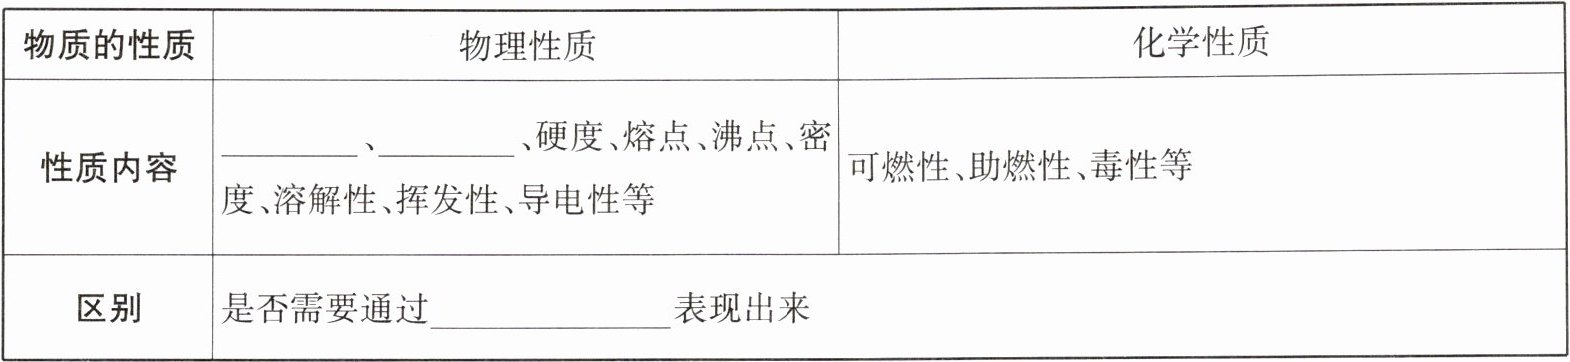 物质的性质 物理性质 化学性质
性质内容 ________、________、硬度、熔点、沸点、密
度、溶解性、挥发性、导电性等 可燃性、助燃性、毒性等
区别 是否需要通过______________表现出来